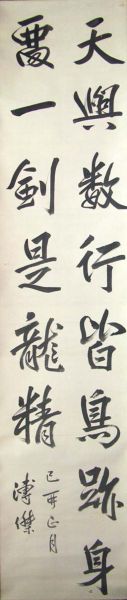 天與数行皆鳥跡身
要一劍是龍精
己酉正月
溥傑